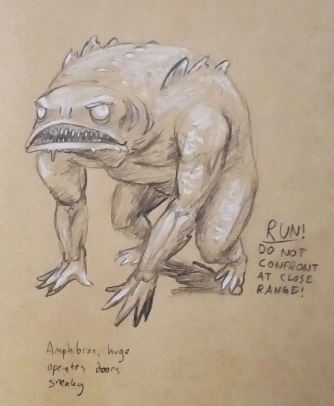 RUN!
DO NOT
CONFRONT
AT CLOSE
RANGE!
Amphibian, huge
operates doors
sneaky